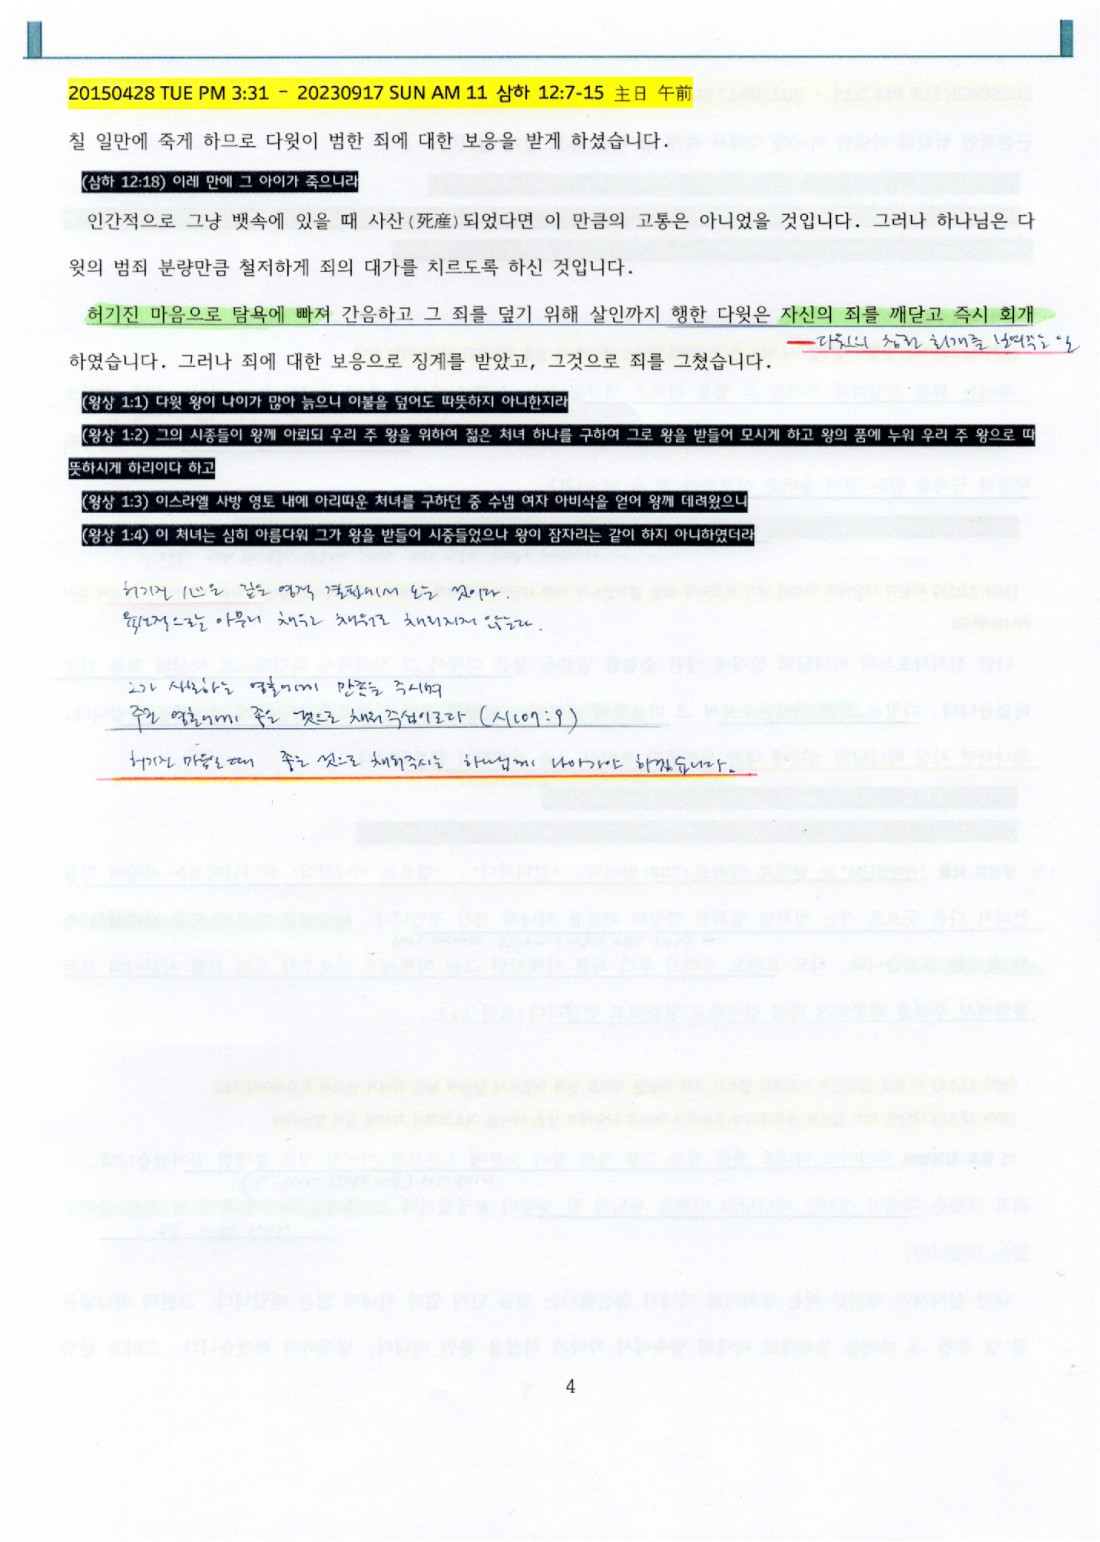 20150428 TUE PM 3:31 - 20230917 SUN AM 11 삼하 12:7-15 主日 午前
칠 일만에 죽게 하므로 다윗이 범한 죄에 대한 보응을 받게 하셨습니다.
(삼하 12:18) 이레 만에 그 아이가 죽으니라
인간적으로 그냥 뱃속에 있을 때 사산(死産)되었다면 이 만큼의 고통은 아니었을 것입니다. 그러나 하나님은 다
윗의 범죄 분량만큼 철저하게 죄의 대가를 치르도록 하신 것입니다.
허기진 마음으로 탐욕에 빠져 간음하고 그 죄를 덮기 위해 살인까지 행한 다윗은 자신의 죄를 깨닫고 즉시 회개
다윗의 참된 회개를 보여주는
하였습니다. 그러나 죄에 대한 보응으로 징계를 받았고, 그것으로 죄를 그쳤습니다.
(왕상 1:1) 다윗 왕이 나이가 많아 늙으니 이불을 덮어도 따뜻하지 아니한지라
(왕상 1:2) 그의 시종들이 왕께 아뢰되 우리 주 왕을 위하여 젊은 처녀 하나를 구하여 그로 왕을 받들어 모시게 하고 왕의 품에 누워 우리 주 왕으로 따
뜻하시게 하리이다 하고
(왕상 1:3) 이스라엘 사방 영토 내에 아리따운 처녀를 구하던 중 수넴 여자 아비삭을 얻어 왕께 데려왔으니
(왕상 1:4) 이 처녀는 심히 아름다워 그가 왕을 받들어 시중들었으나 왕이 잠자리는 같이 하지 아니하였더라
허기진 心은 깊은 영적 결핍에서 오는 것이다.
육신적으로는 아무리 채우고 채워도 채워지지 않는다.
그가 사모하는 영혼에게 만족을 주시며
주린 영혼에게 좋은 것으로 채워주심이로다 (시107:9)
허기진 마음일 때 좋은 것으로 채워주시는 하나님께 나아가야 하겠습니다.
4